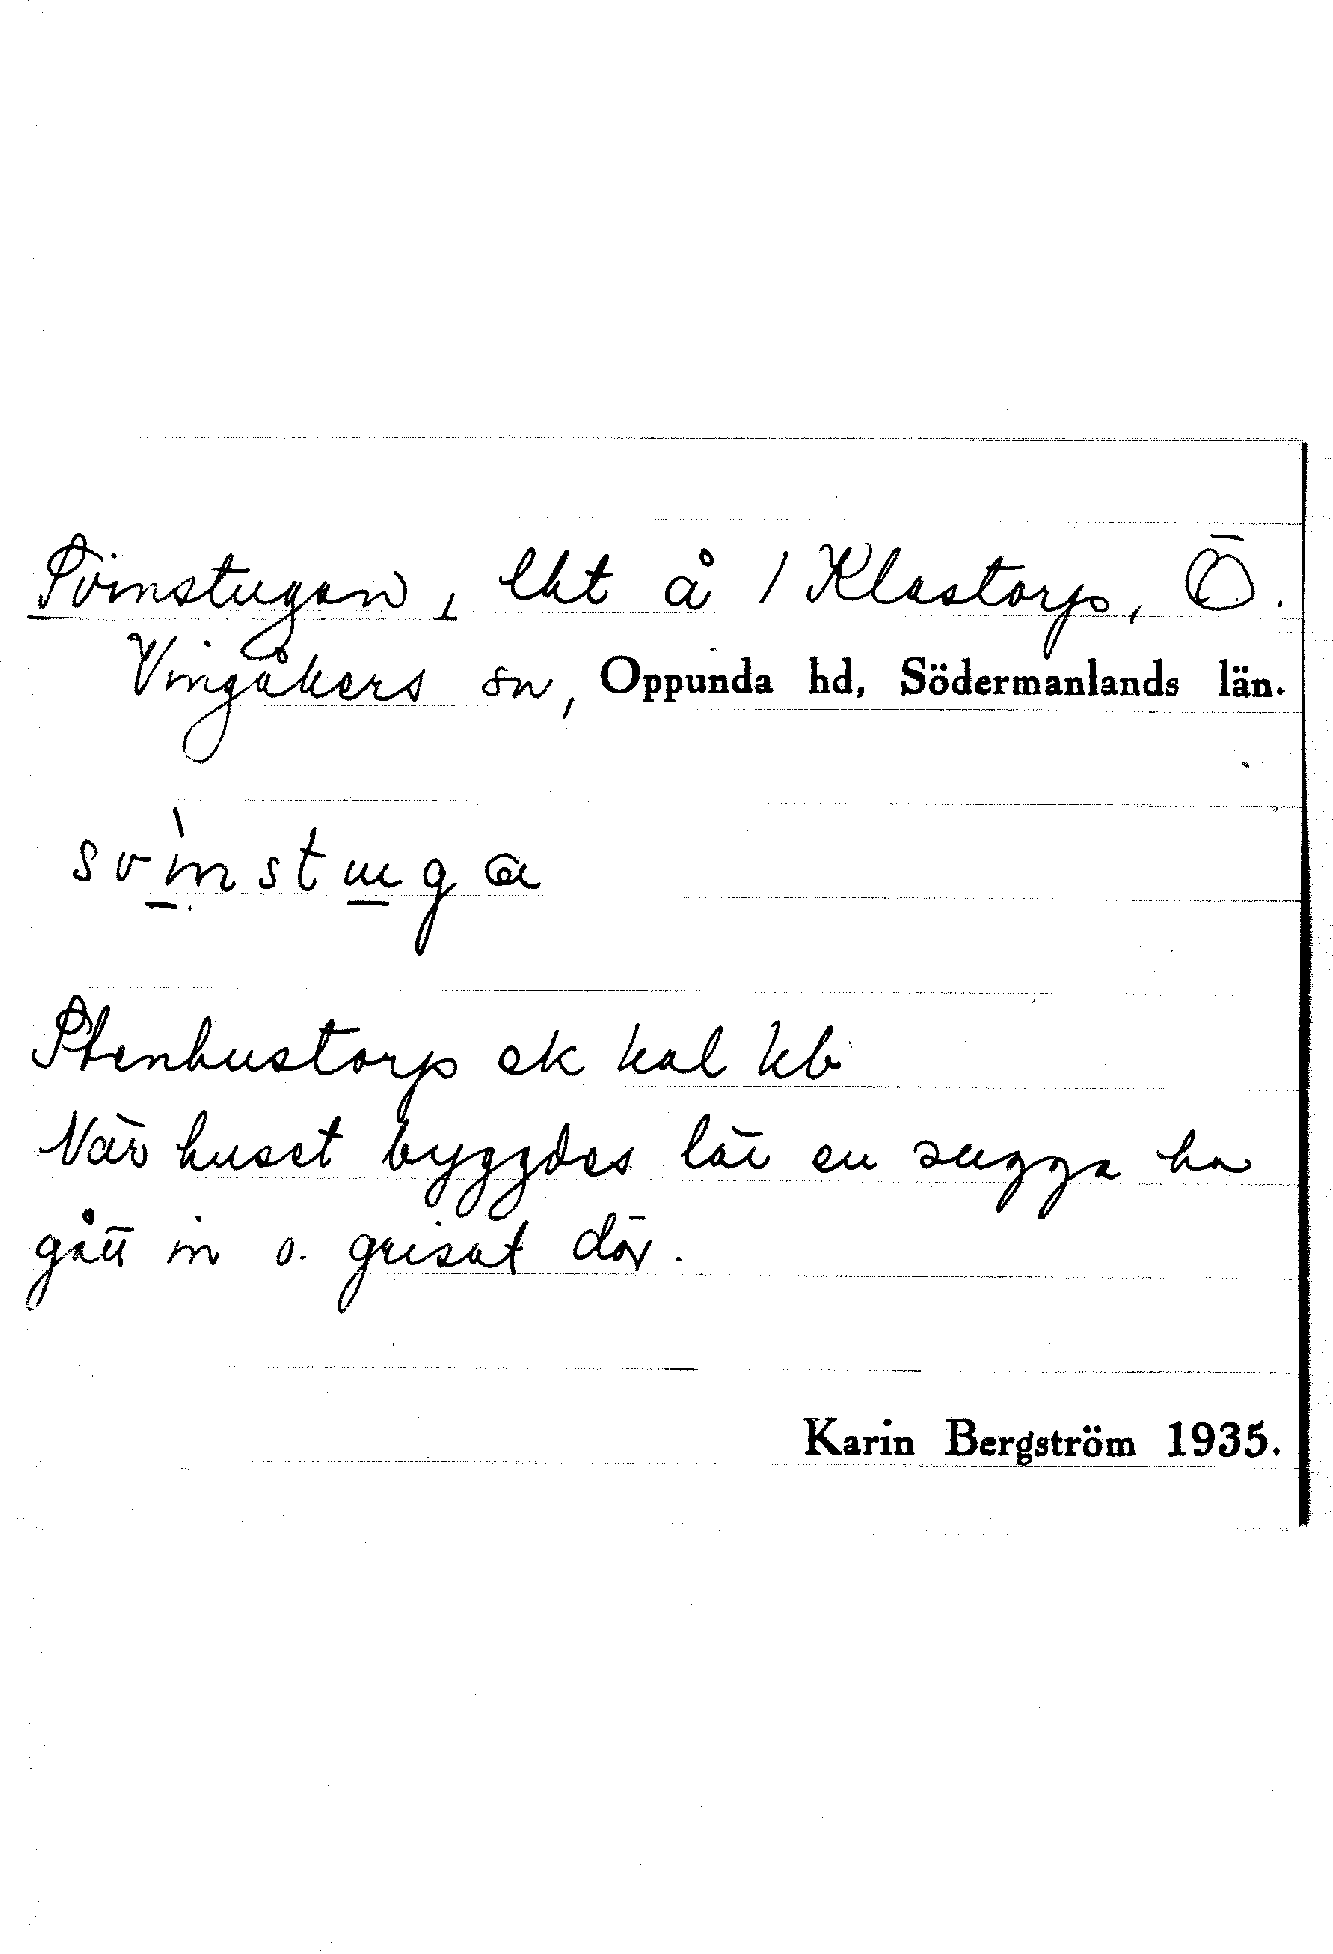 Svinstugan, lht å 1 Klastorp, Ö.
Vingåkers sn, Oppunda hd, Södermanlands län.
svi̠nstu̠ga
Stenhustorp ek kal kb
När huset byggdes lär en sugga ha
gått in o. grisat där.
Karin Bergström 1935.